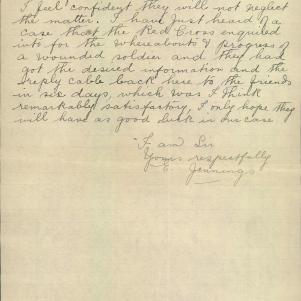 I feel confident they will not neglect
the matter. I have just heard of a
case that the Red Cross enquired
into for the whereabouts & progress of
a wounded soldier and they had
got the desired information and the
reply cable back here to the friends
in six days, which was I think
remarkably satisfactory, I only hope they
will have as good luck in our case
I am Sir
Yours respectfully
E. Jennings